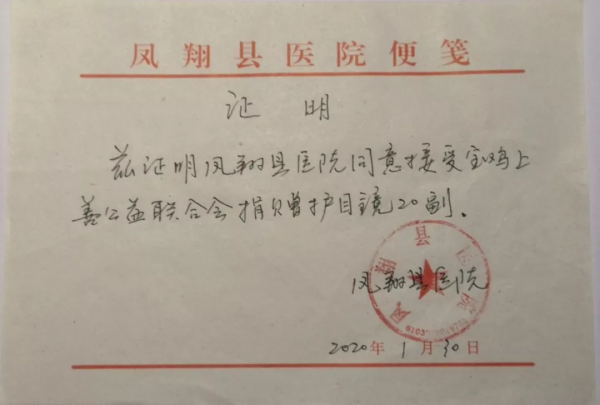 凤翔县医院便笺
证 明
兹证明凤翔县医院同意接受宝鸡上
善公益联合会捐赠护目镜20副。
凤翔县医院
凤翔县医院
2020年1月30日